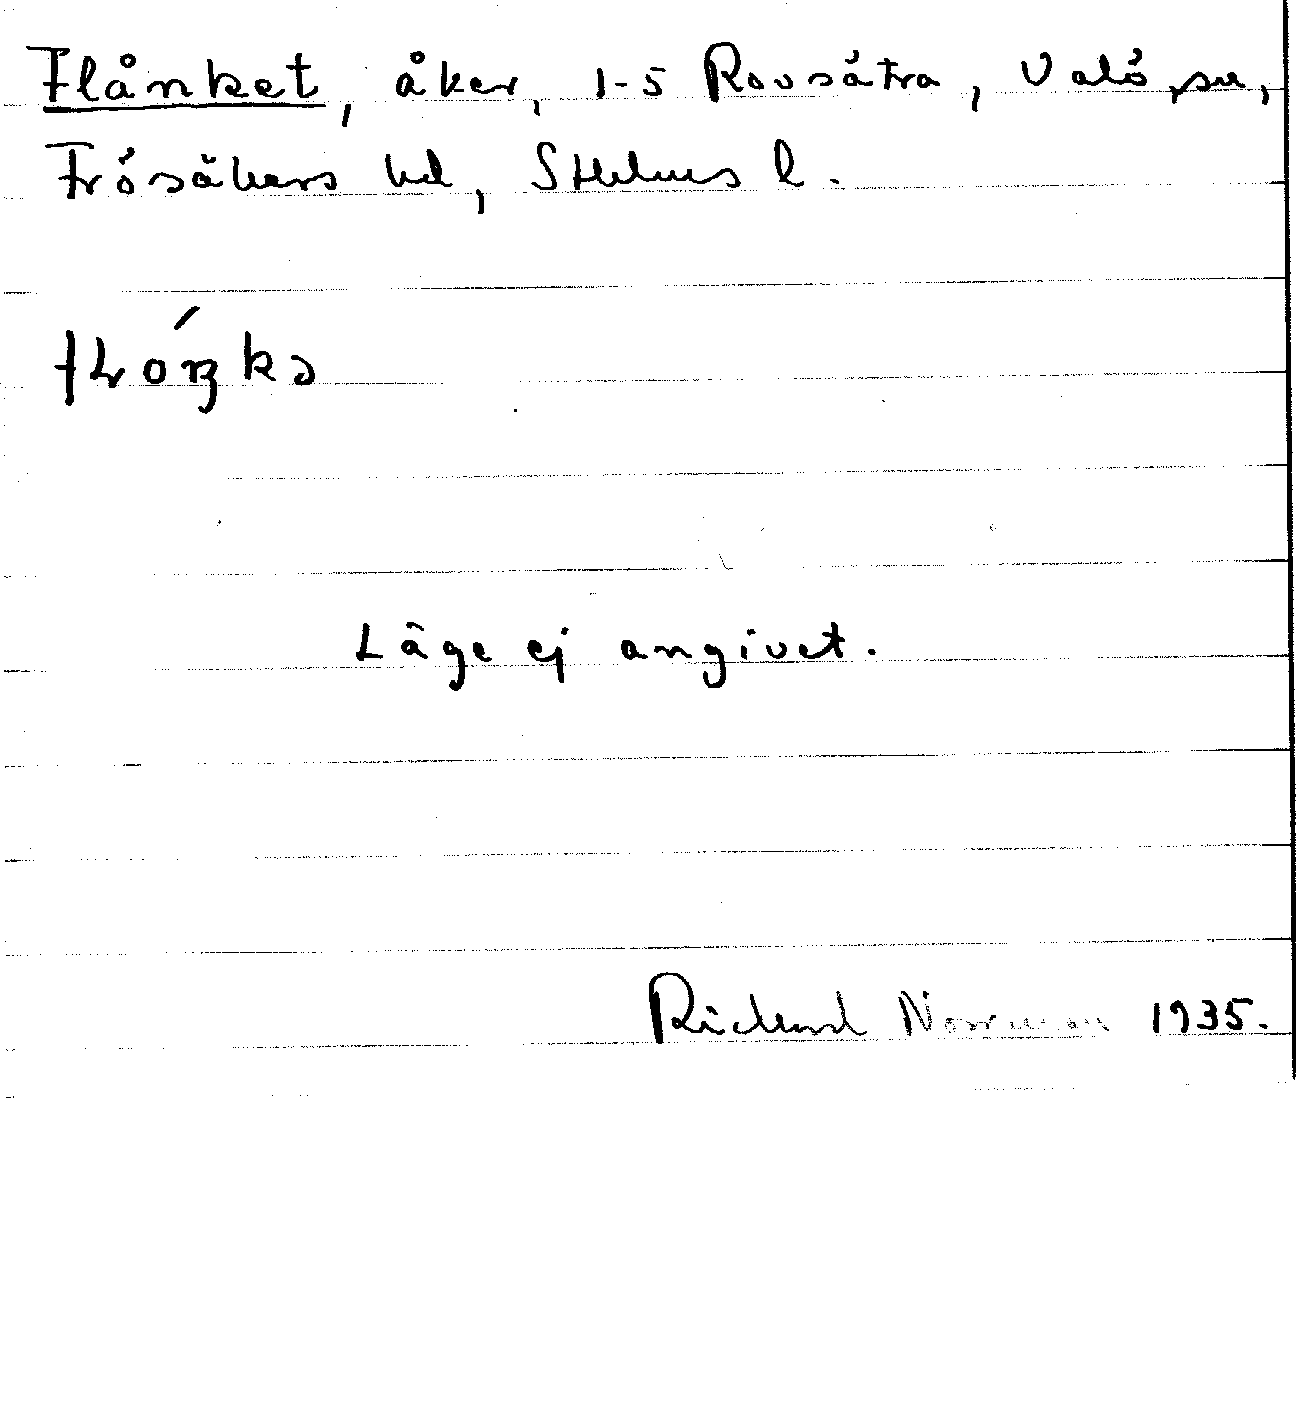 Flånket, åker, 1-5 Rovsätra, Valö sn,
Frösåkers hd, Sthlms l.
Läge ej angivet.
Rickard Norrman 1935.